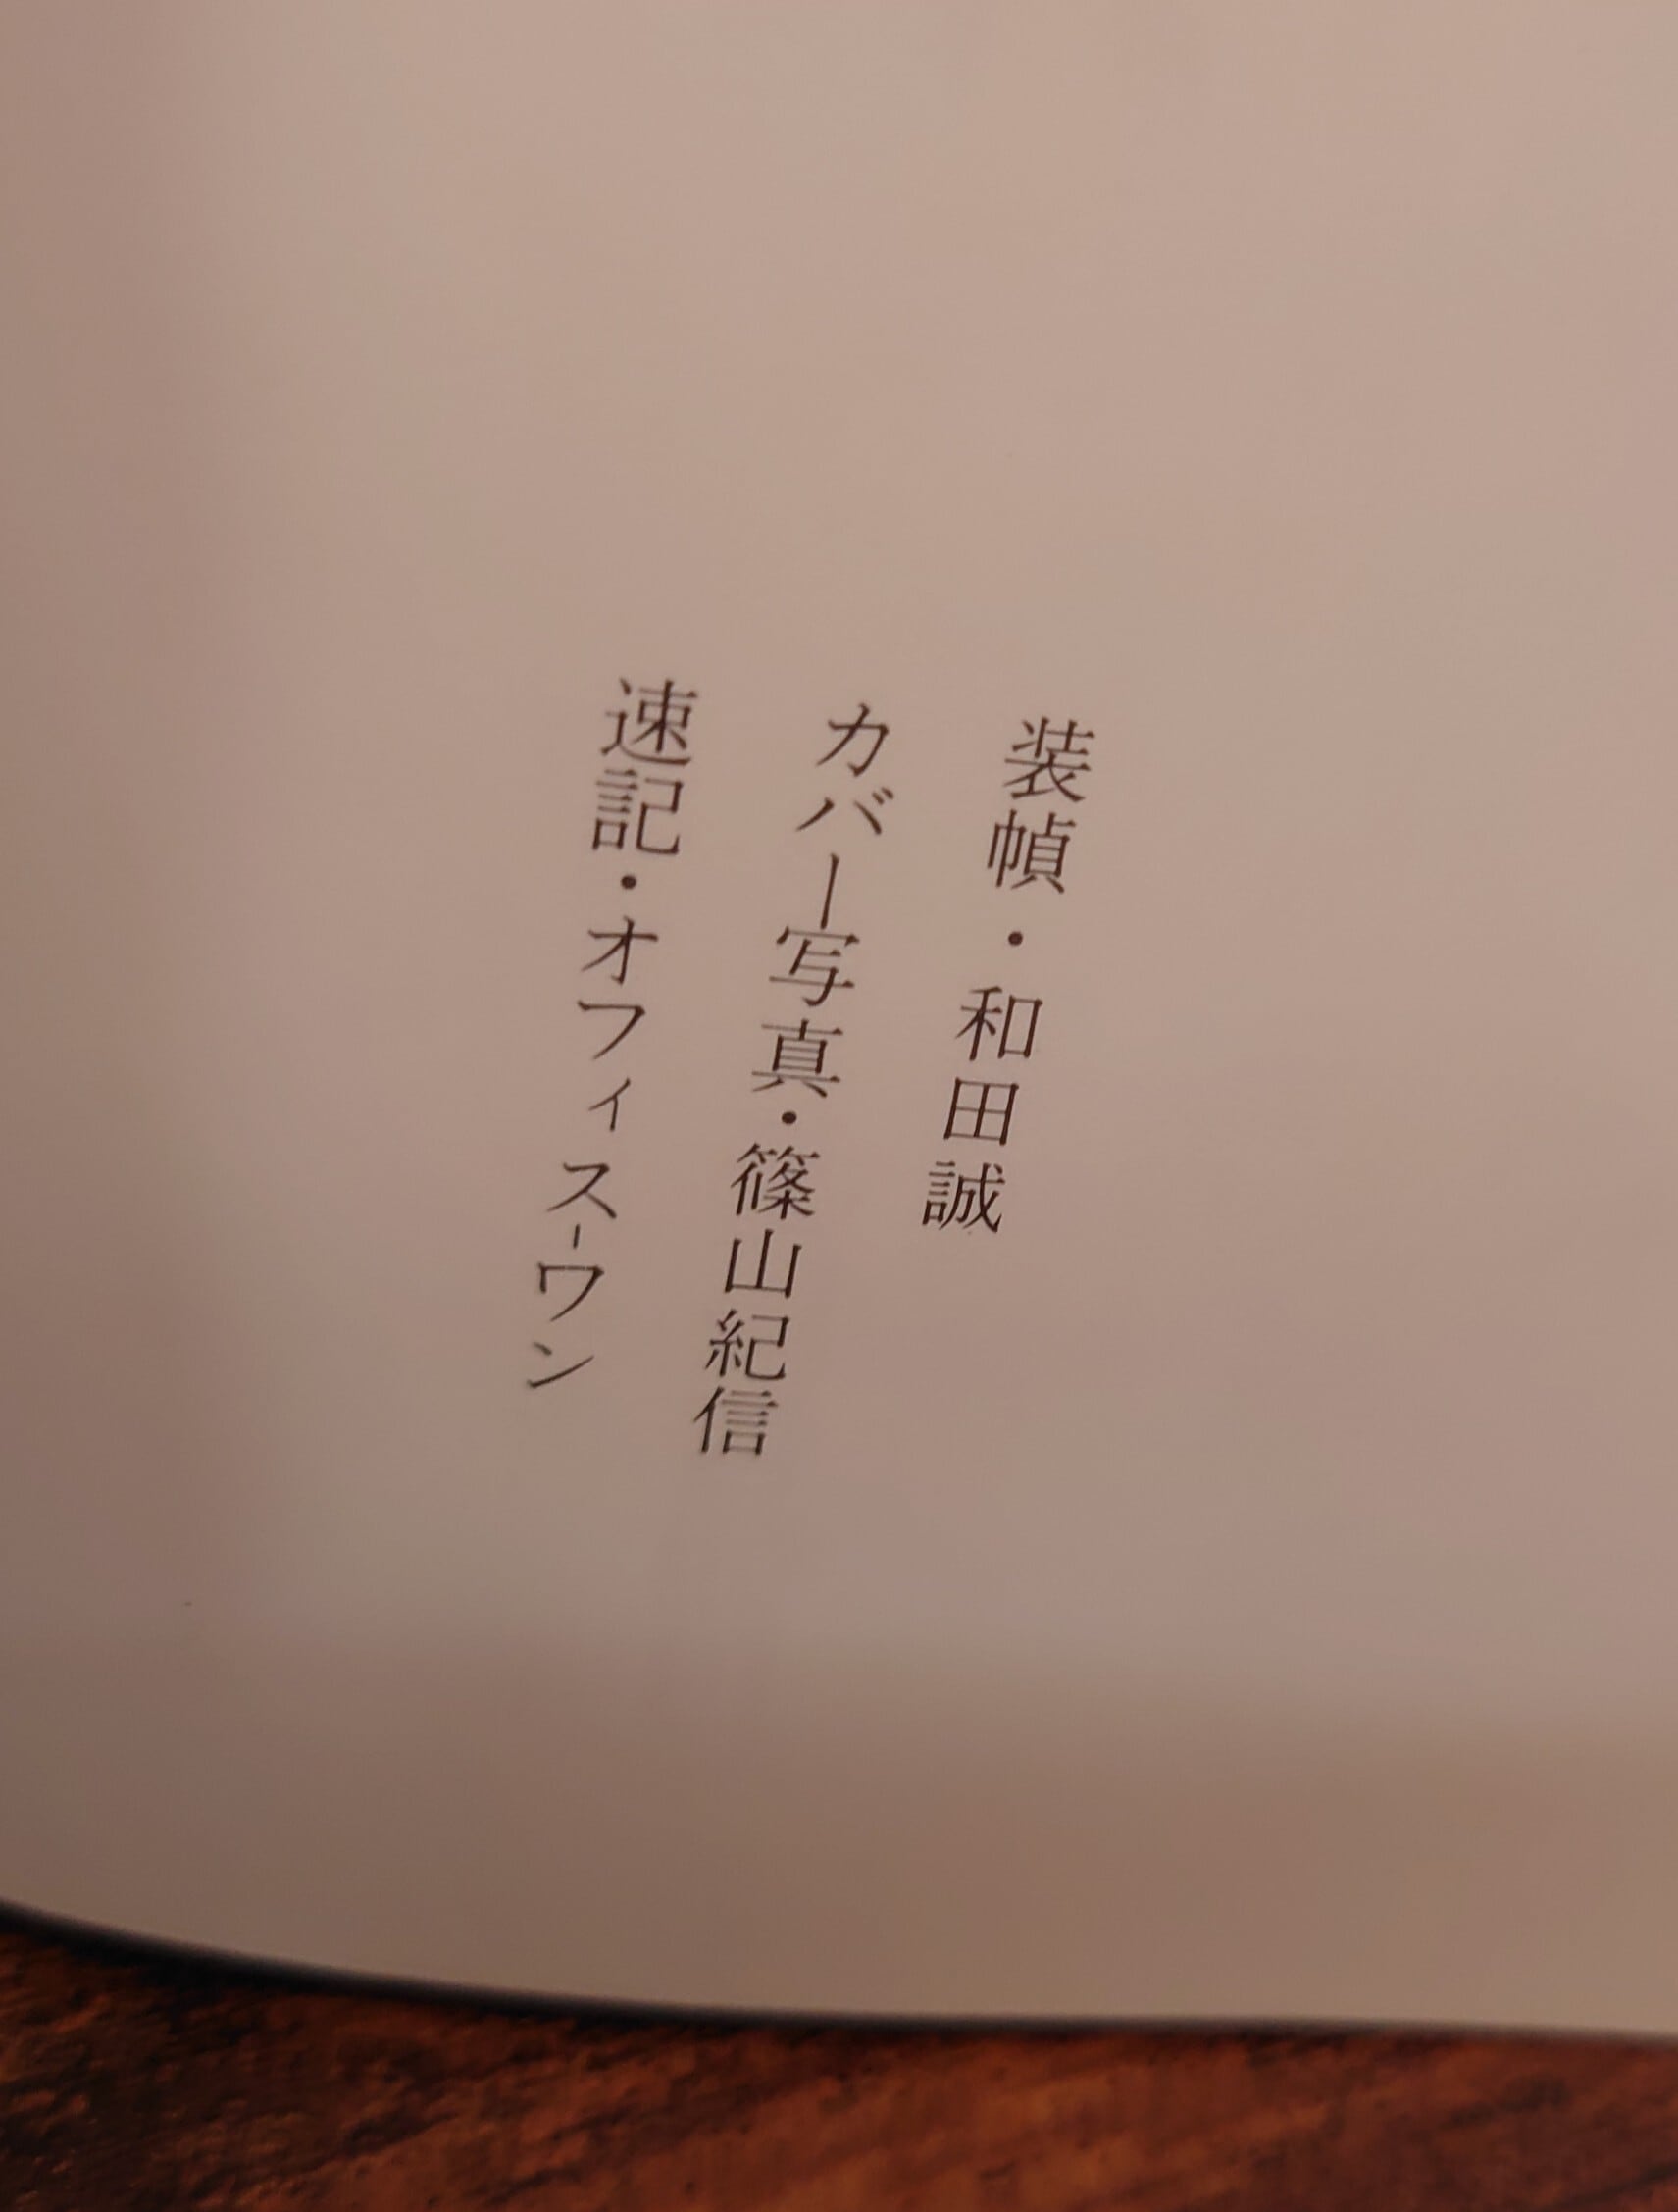 装幀・和田誠
カバー写真・篠山紀信
速記・オフィス-ワン